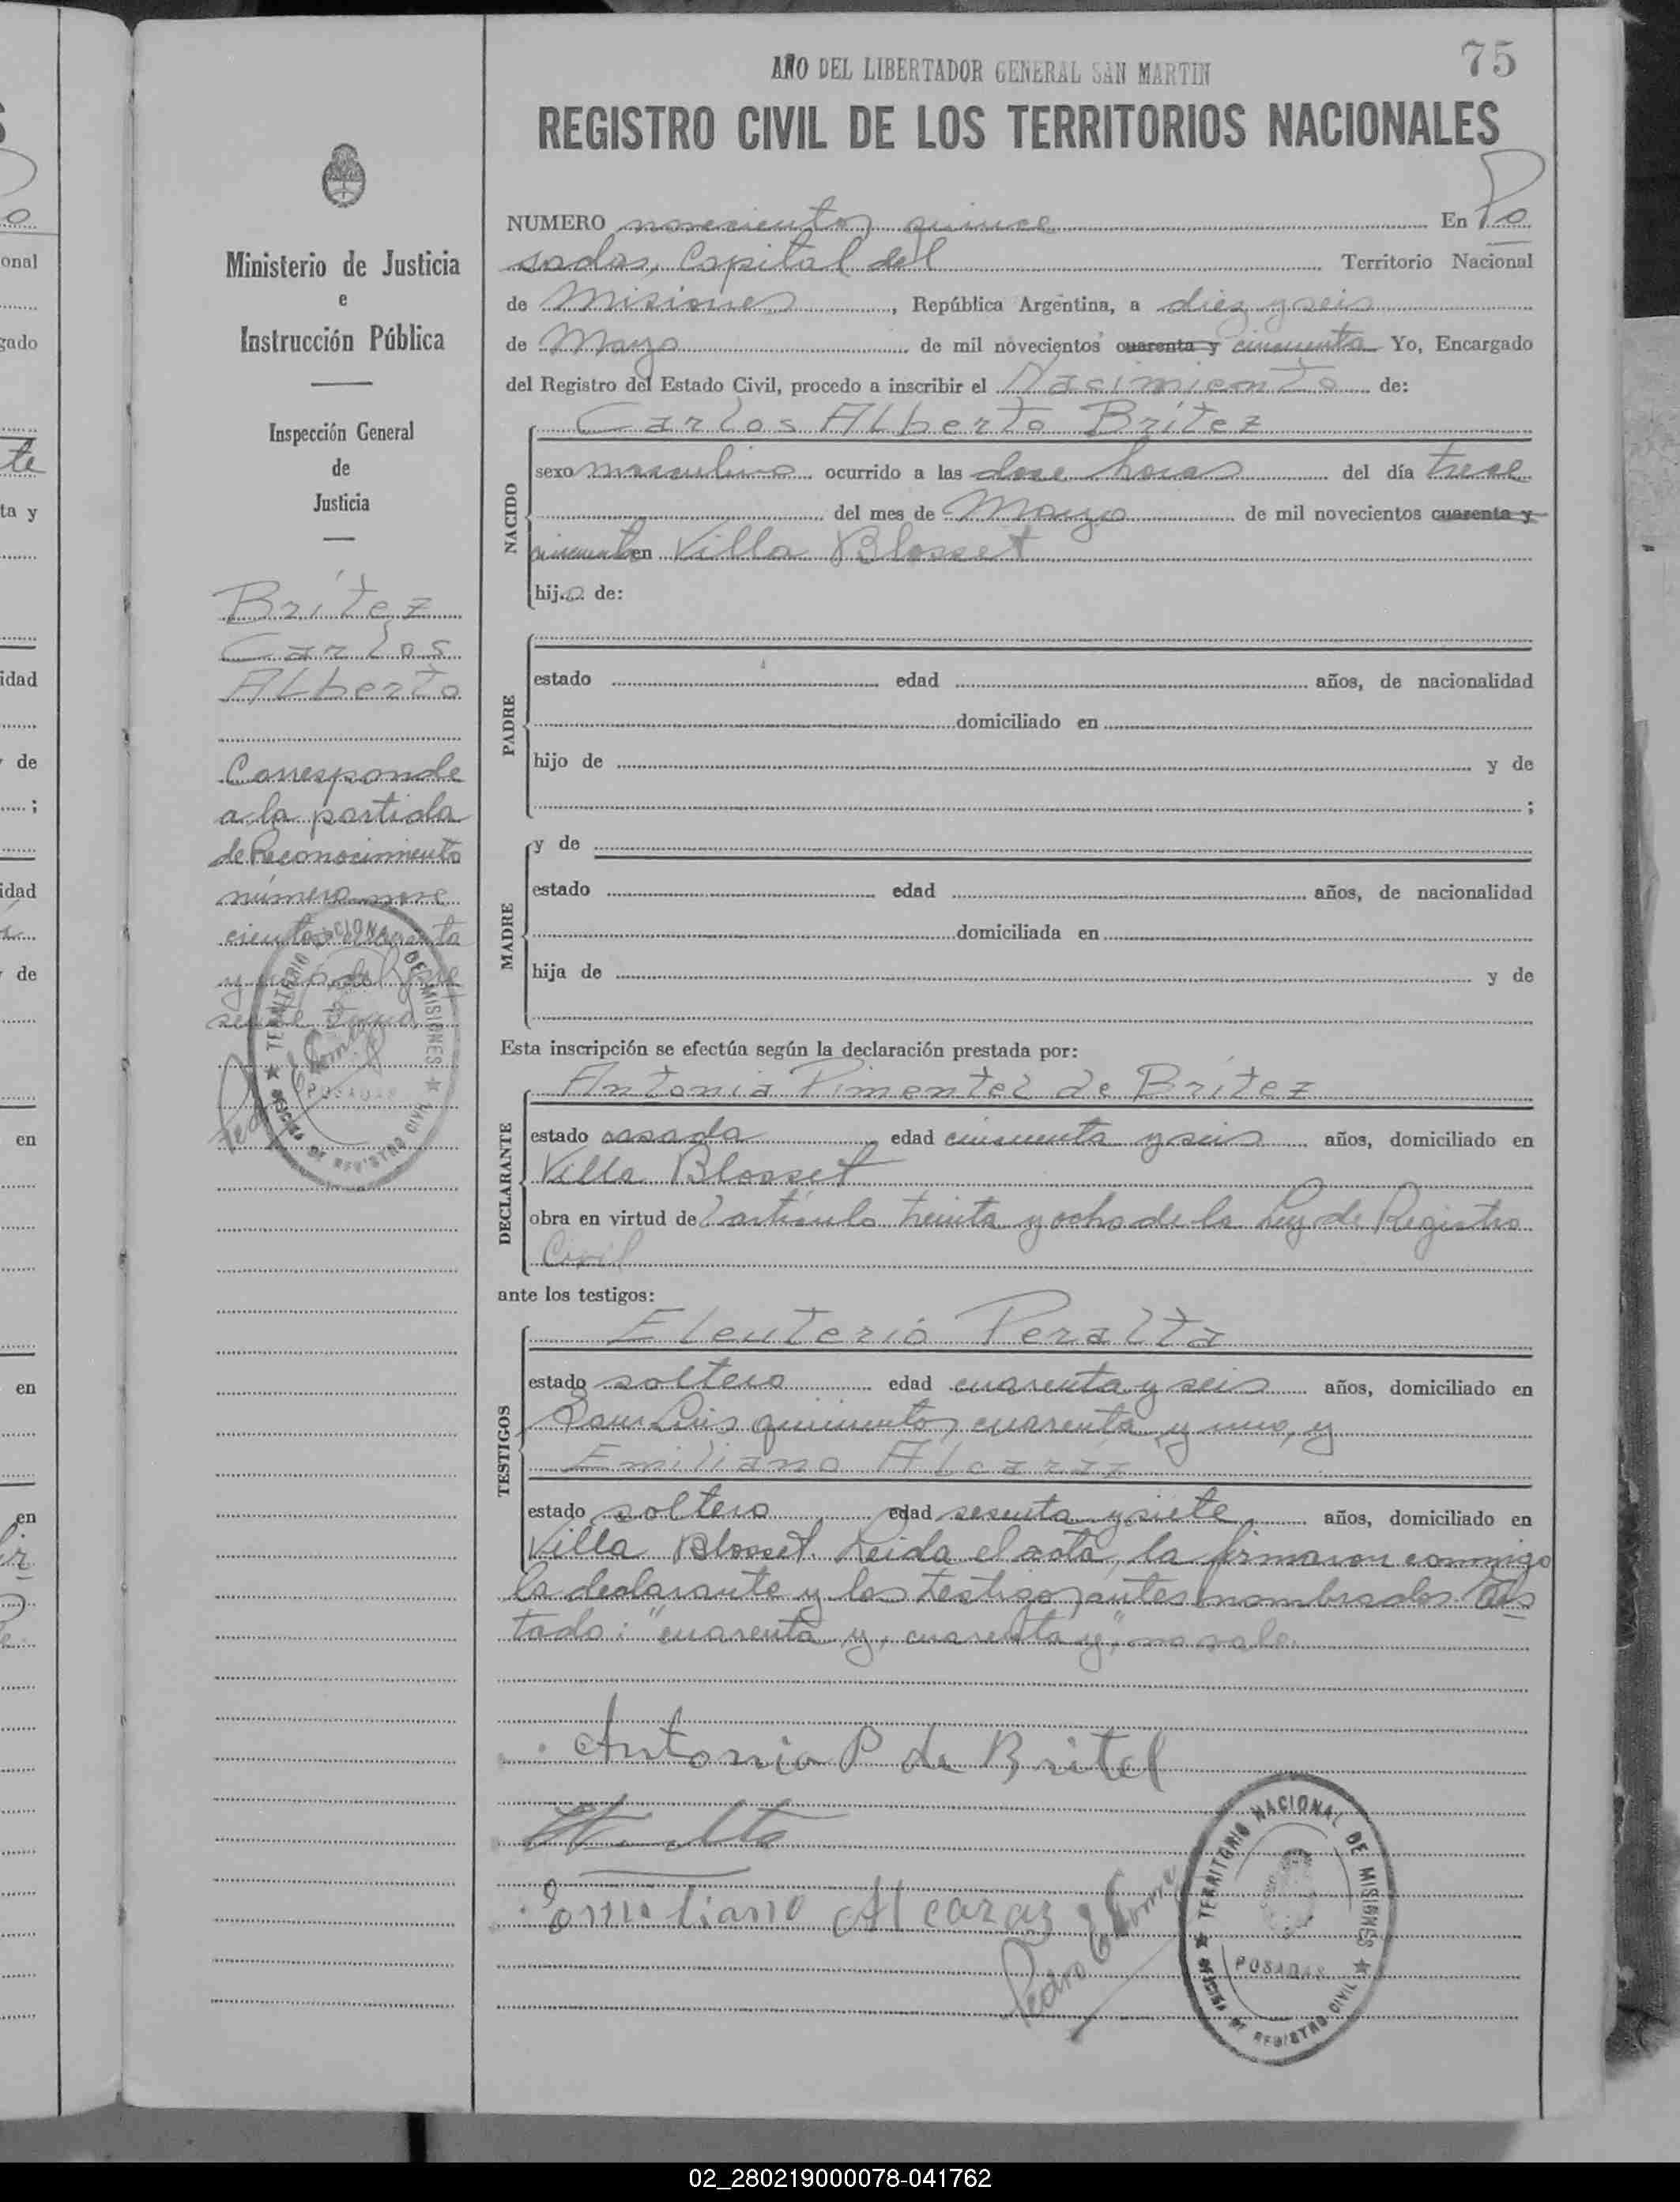 75
AÑO DEL LIBERTADOR GENERAL SAN MARTIN
REGISTRO CIVIL DE LOS TERRITORIOS NACIONALES
Ministerio de Justicia
e
Instrucción Pública
Inspección General
de
Justicia
Brítez
Carlos
Alberto
Corresponde
a la partida
de Reconocimiento
número nove
cientos
y de
TERRITORIO NACIONAL DE MISIONES
POSADAS
OFICINA DE REGISTRO CIVIL
NUMERO novecientos quince En Po
sadas, Capital del Territorio Nacional
de Misiones, República Argentina, a diez y seis
de Marzo de mil novecientos cuarenta y cincuenta Yo, Encargado
del Registro del Estado Civil, procedo a inscribir el Nacimiento de:
Carlos Alberto Brítez
NACIDO
sexo masculino ocurrido a las doce horas del día trece
del mes de Marzo de mil novecientos cuarenta y
cincuenta en Villa Blosset
hijo de:
PADRE
estado edad años, de nacionalidad
domiciliado en
hijo de y de
;
MADRE
y de
estado edad años, de nacionalidad
domiciliada en
hija de y de
Esta inscripción se efectúa según la declaración prestada por:
Antonia Pimentel de Brítez
DECLARANTE
estado casada, edad cincuenta y seis años, domiciliado en
Villa Blosset
obra en virtud del artículo treinta y ocho de la Ley de Registro
Civil
ante los testigos:
Eleuterio Peralta
TESTIGOS
estado soltero edad cuarenta y seis años, domiciliado en
San Luis quinientos cuarenta y uno, y
Emiliano Alcaraz
estado soltero edad sesenta y siete años, domiciliado en
Villa Blosset. Leída el acta, la firmaron conmigo
la declarante y los testigos antes nombrados. Tes
tado: "cuarenta y, cuarenta y", no vale.
Antonia P de Britel
Emiliano Alcaraz
Pedro
TERRITORIO NACIONAL DE MISIONES
POSADAS
OFICINA DE REGISTRO CIVIL
02_280219000078-041762